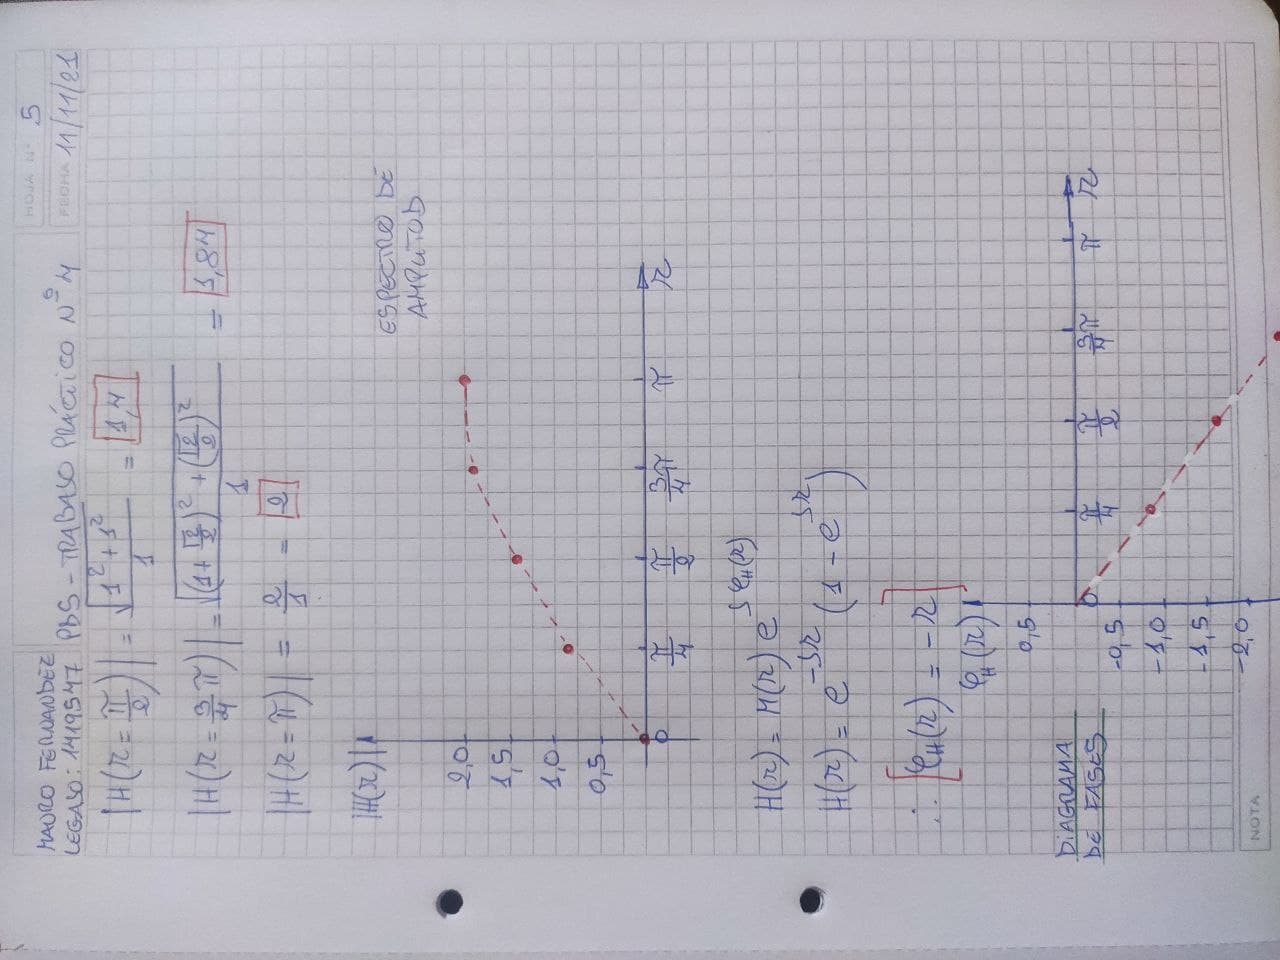 HOJA Nº 5
MAURO FERNANDEZ
LEGAJO: 1419547 PDS - TRABAJO PRÁCTICO Nº 4 FECHA 11/11/21
|H(r = π/2)| = √(1² + 1²) / 1 = 1,4
|H(r = 3/4 π)| = √((1 + √2/2)² + (√2/2)²) / 1 = 1,84
|H(r = π)| = 2/1 = 2
|H(r)|
ESPECTRO DE
AMPLITUD
2,0
1,5
1,0
0,5
0 π/4 π/2 3/4 π π r
H(r) = M(r) e^{jφ_H(r)}
H(r) = e^{-jr} (1 - e^{jr})
∴ [φ_H(r) = -r]
φ_H(r)
0,5
DIAGRAMA
DE FASES
0 π/4 π/2 3/4 π π r
-0,5
-1,0
-1,5
-2,0
NOTA